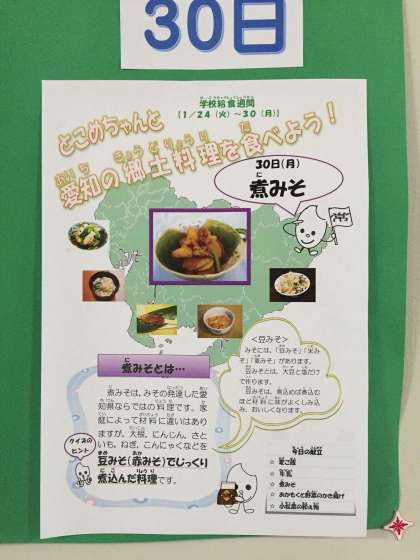 30日
学校給食週間
【1/24(火)~30(月)】
とこめちゃんと
愛知の郷土料理を食べよう!
30日(月)
煮みそ
<豆みそ>
みそには、「豆みそ」「米み
そ」「麦みそ」があります。
豆みそとは、大豆と塩だけ
で作ります。
豆みそは、煮込めば煮込む
ほど材料に味がよくしみ込
み、おいしくなります。
煮みそとは…
煮みそは、みその発達した愛
知県ならではの料理です。家
庭によって材料に違いはあり
ますが、大根、にんじん、さと
いも、ねぎ、こんにゃくなどを
豆みそ(赤みそ)でじっくり
煮込んだ料理です。
クイズの
ヒント
今日の献立
☆ 麦ご飯
☆ 牛乳
☆ 煮みそ
☆ おからもくと野菜のかき揚げ
☆ 小松菜の和え物